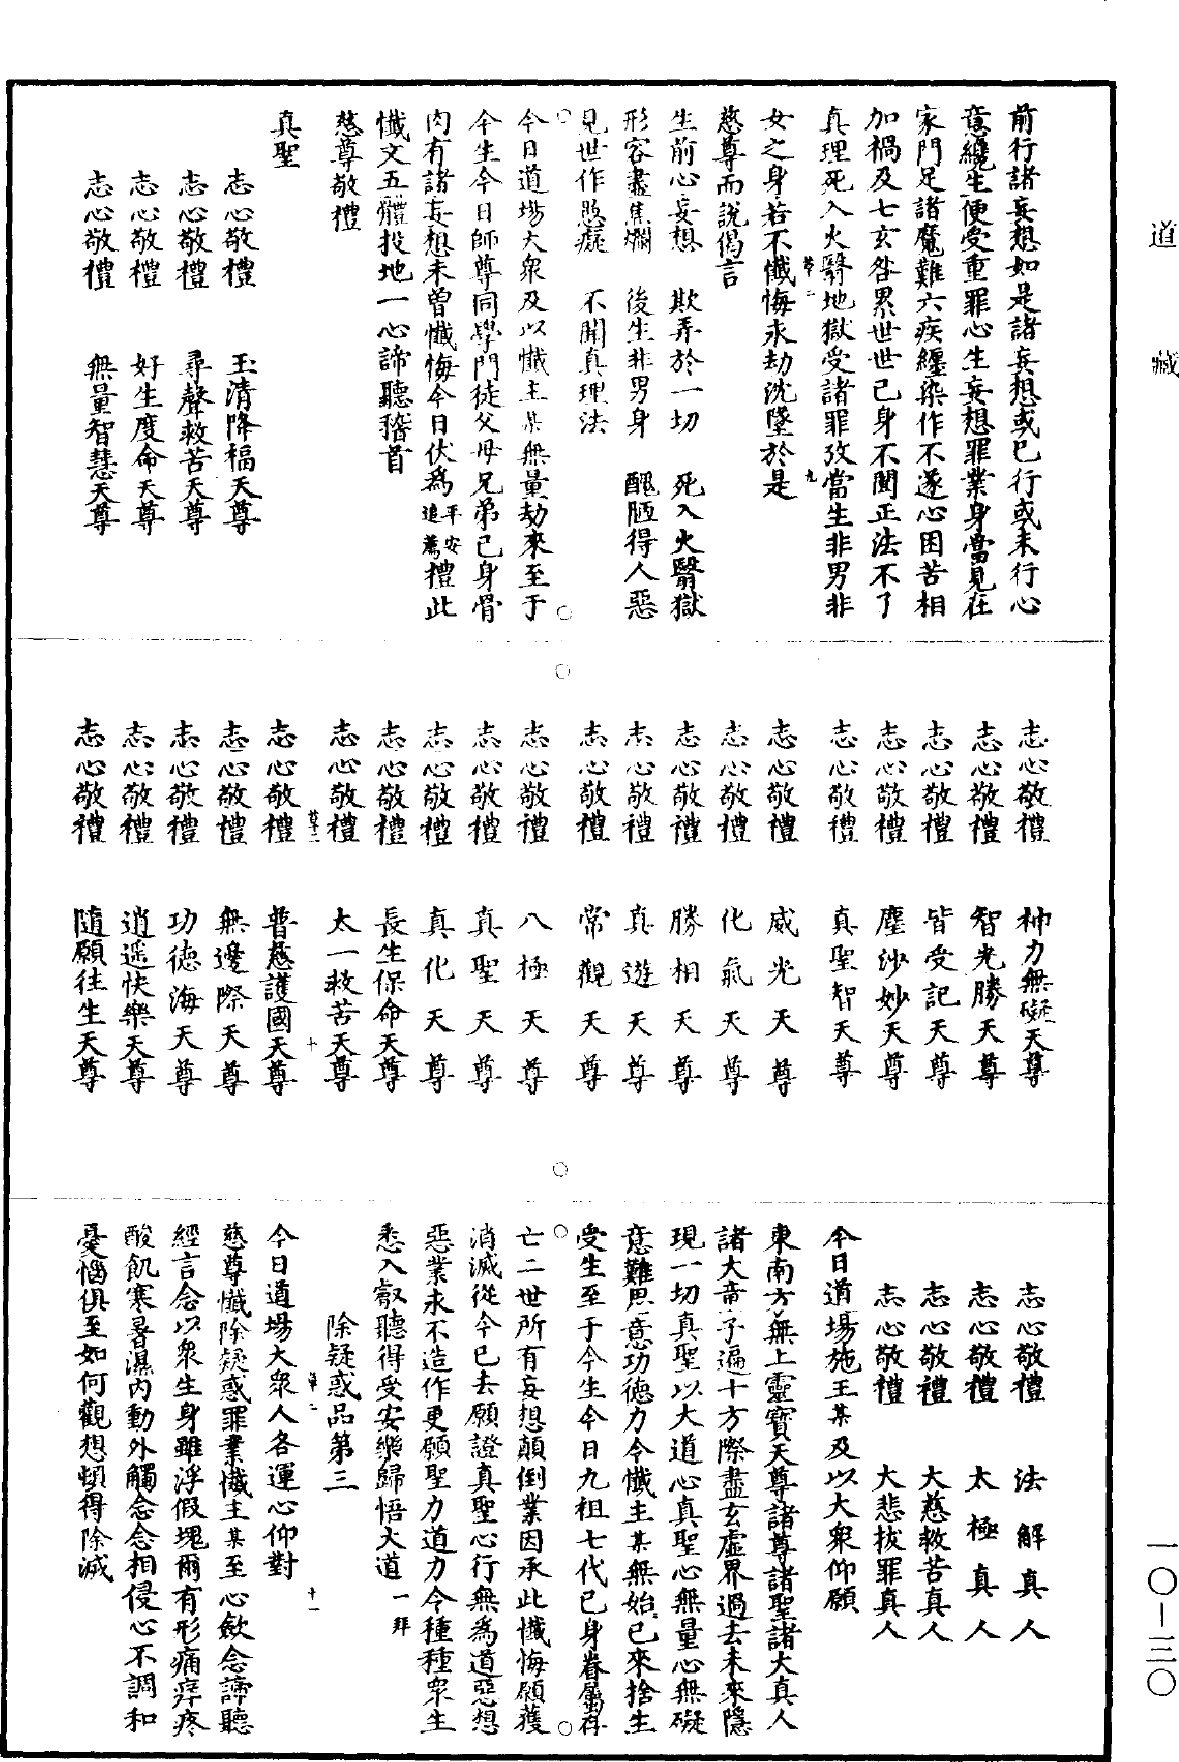 前行諸妄想如是諸妄想或已行或未行心
意纔生便受重罪心生妄想罪業身當見在
家門足諸魔難六疾纏染作不遂心困苦相
加禍及七玄咎累世世已身不聞正法不了
真理死入火翳地獄受諸罪攷當生非男非
女之身若不懺悔永劫沈墜於是
慈尊而說偈言
生前心妄想　欺弄於一切　死入火翳獄
形容盡焦爛　後生非男身　醜陋得人惡
見世作愚癡　不聞真理法
今日道場大衆及以懺主某無量劫來至于
今生今日師尊同學門徒父母兄弟已身骨
肉有諸妄想未曾懺悔今日伏爲平安追薦禮此
懺文五體投地一心諦聽稽首
慈尊敬禮
真聖
志心敬禮　玉清降福天尊
志心敬禮　尋聲救苦天尊
志心敬禮　好生度命天尊
志心敬禮　無量智慧天尊
志心敬禮　神力無礙天尊
志心敬禮　智光勝天尊
志心敬禮　皆受記天尊
志心敬禮　塵沙妙天尊
志心敬禮　真聖智天尊
志心敬禮　威光天尊
志心敬禮　化氣天尊
志心敬禮　勝相天尊
志心敬禮　真遊天尊
志心敬禮　常觀天尊
志心敬禮　八極天尊
志心敬禮　真聖天尊
志心敬禮　真化天尊
志心敬禮　長生保命天尊
志心敬禮　太一救苦天尊
志心敬禮　普慈護國天尊
志心敬禮　無邊際天尊
志心敬禮　功德海天尊
志心敬禮　逍遥快樂天尊
志心敬禮　隨願往生天尊
志心敬禮　法解真人
志心敬禮　太極真人
志心敬禮　大慈救苦真人
志心敬禮　大悲拔罪真人
今日道場施主某及以大衆仰願
東南方無上靈寶天尊諸尊諸聖諸大真人
諸大童子遍十方際盡玄虛界過去未來隱
現一切真聖以大道心真聖心無量心無礙
意難思意功德力今懺主某無始已來捨生
受生至于今生今日九祖七代已身眷屬存
亡二世所有妄想顛倒業因承此懺悔願獲
消滅從今已去願證真聖心行無爲道惡想
惡業永不造作更願聖力道力今種種衆生
悉入叡聽得受安樂歸悟大道一拜
除疑惑品第三
今日道場大衆人各運心仰對
慈尊懺除疑惑罪業懺主某至心斂念諦聽
經言念以衆生身雖浮假塊爾有形痛痒疼
酸飢寒暑濕内動外觸念念相侵心不調和
憂惱俱至如何觀想頓得除滅
道藏
一〇—三〇